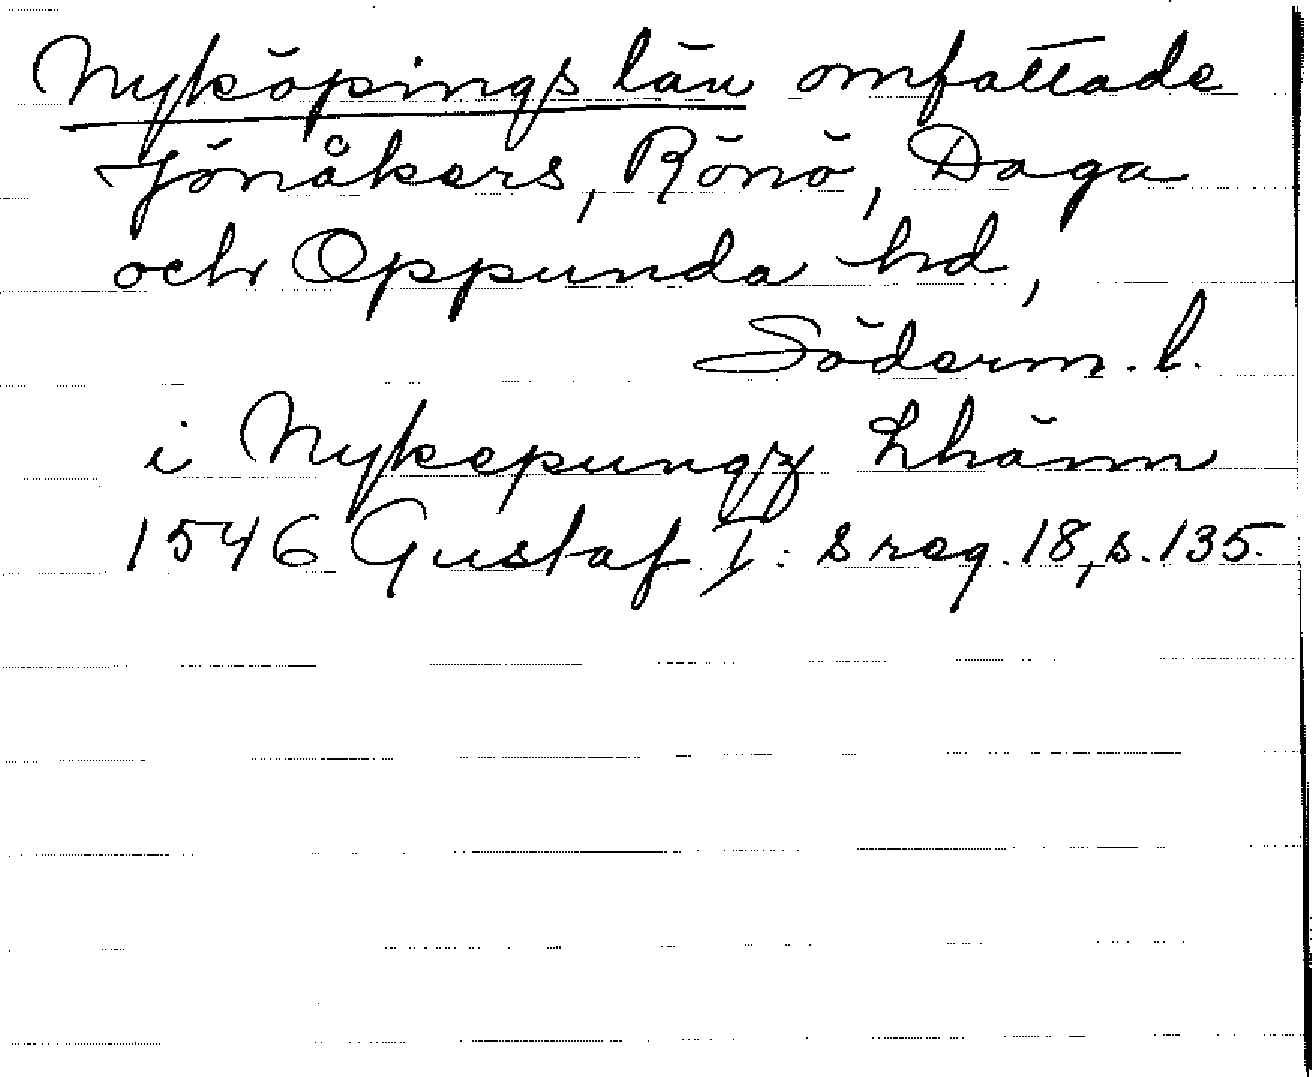 Nyköpings län omfattade
Jönåkers, Rönö, Daga
och Oppunda hd,
Söderm. l.
i Nykepungz Lhänn
1546 Gustaf I:s reg. 18, s. 135.